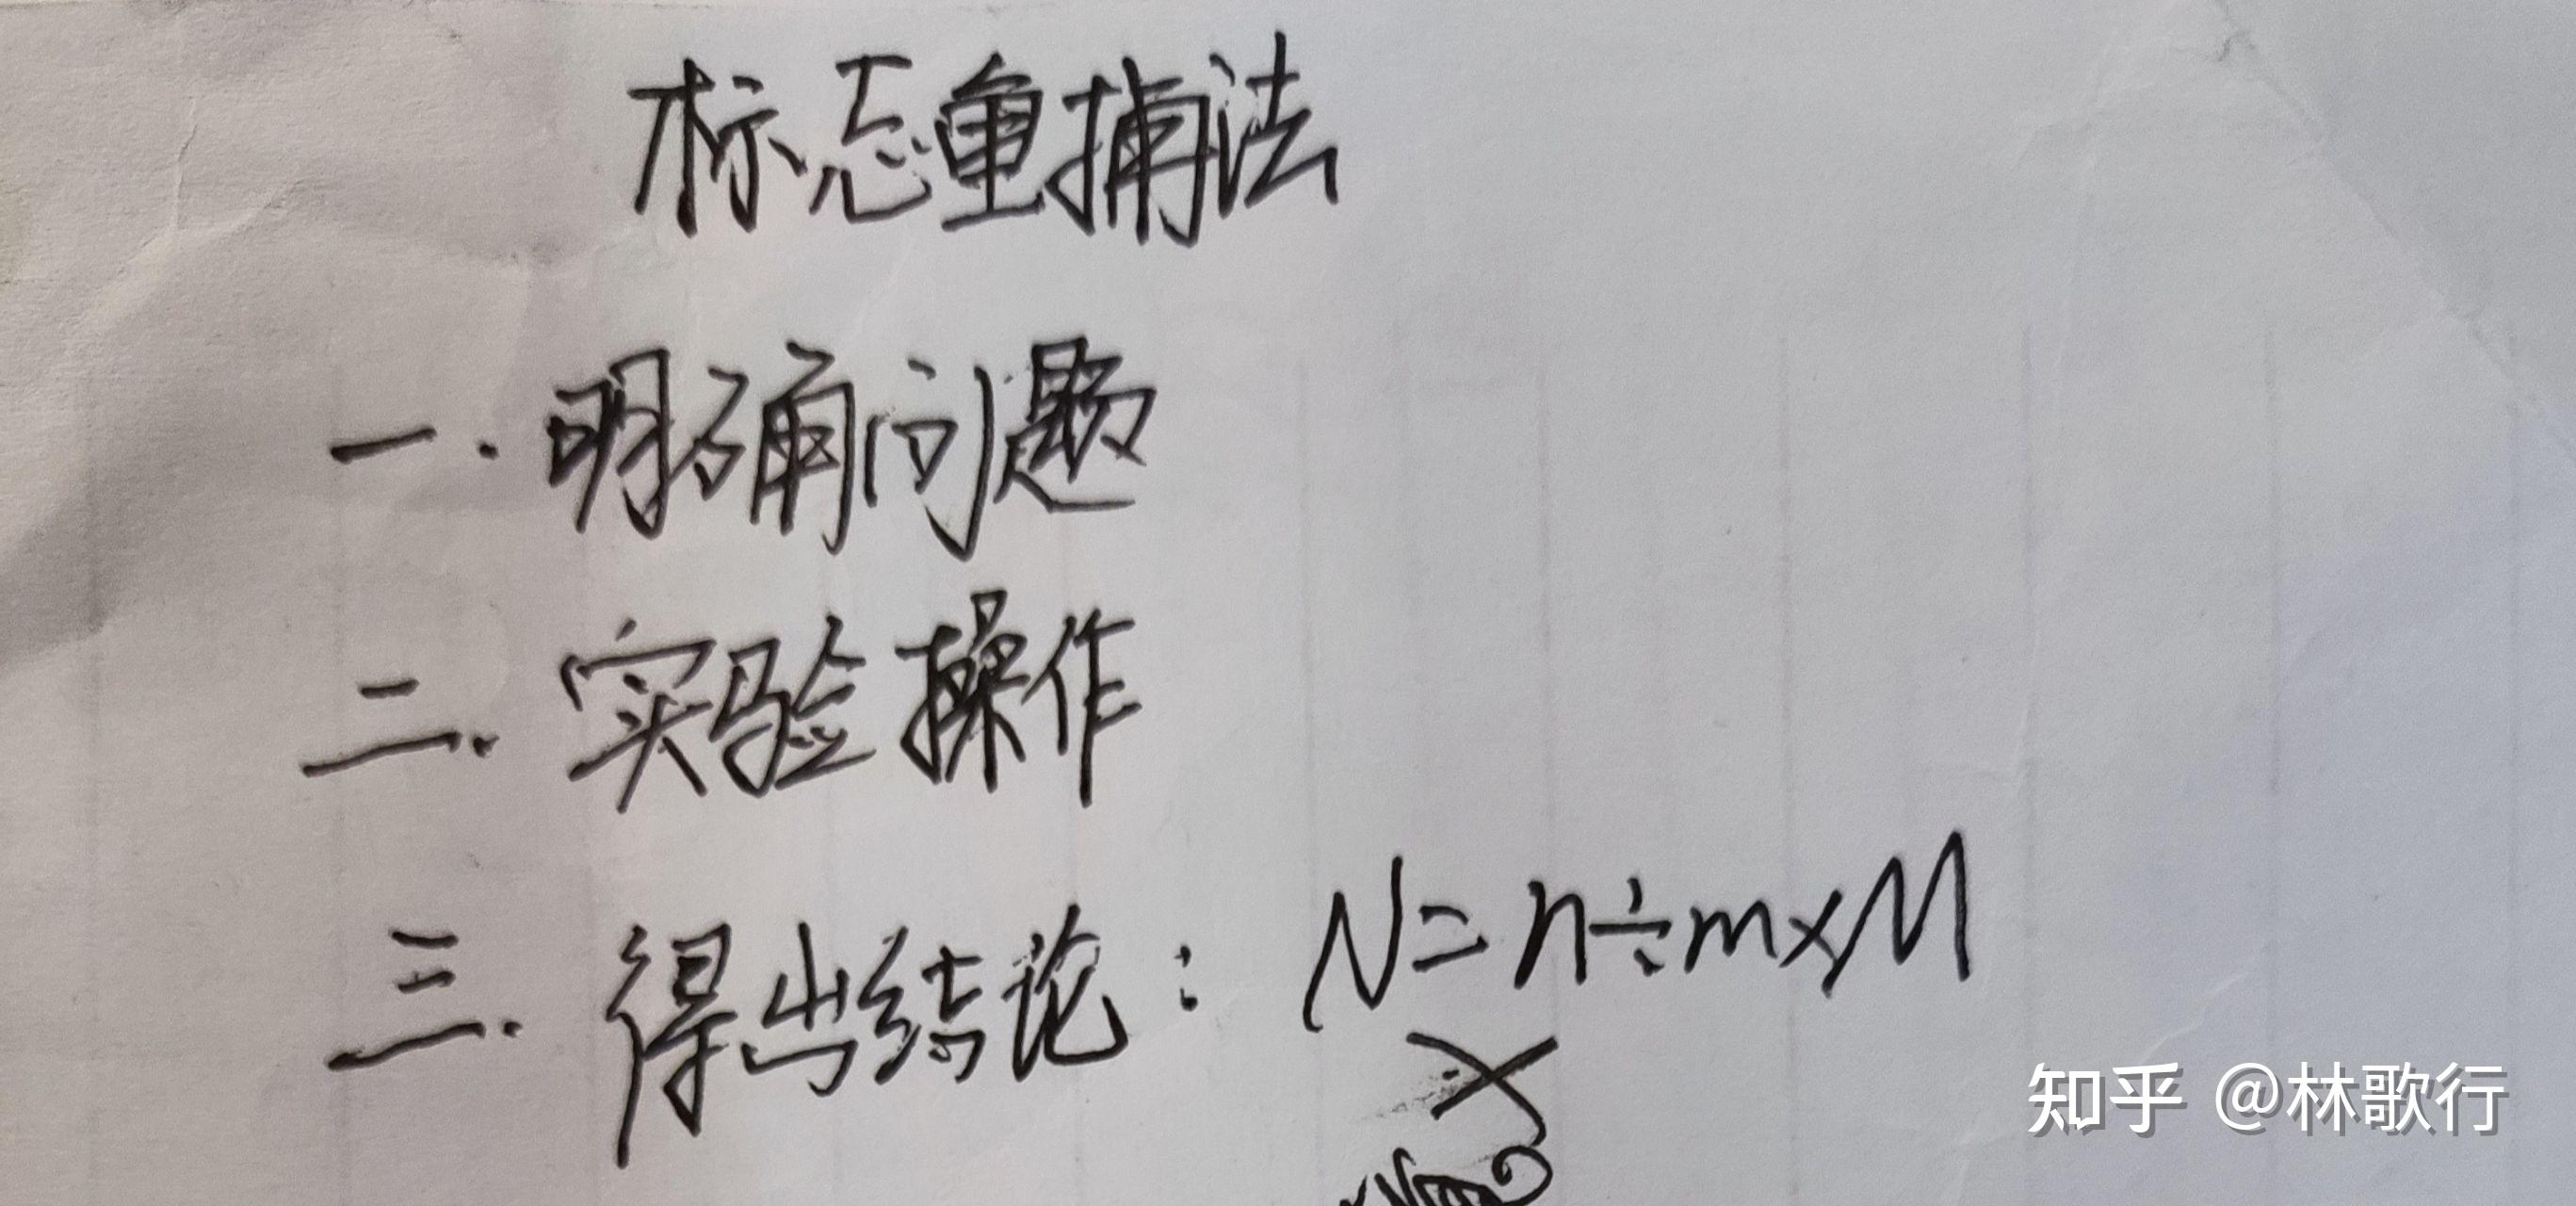 标志重捕法
一.明确问题
二.实验操作
三.得出结论:N=n÷m×M
知乎 @林歌行